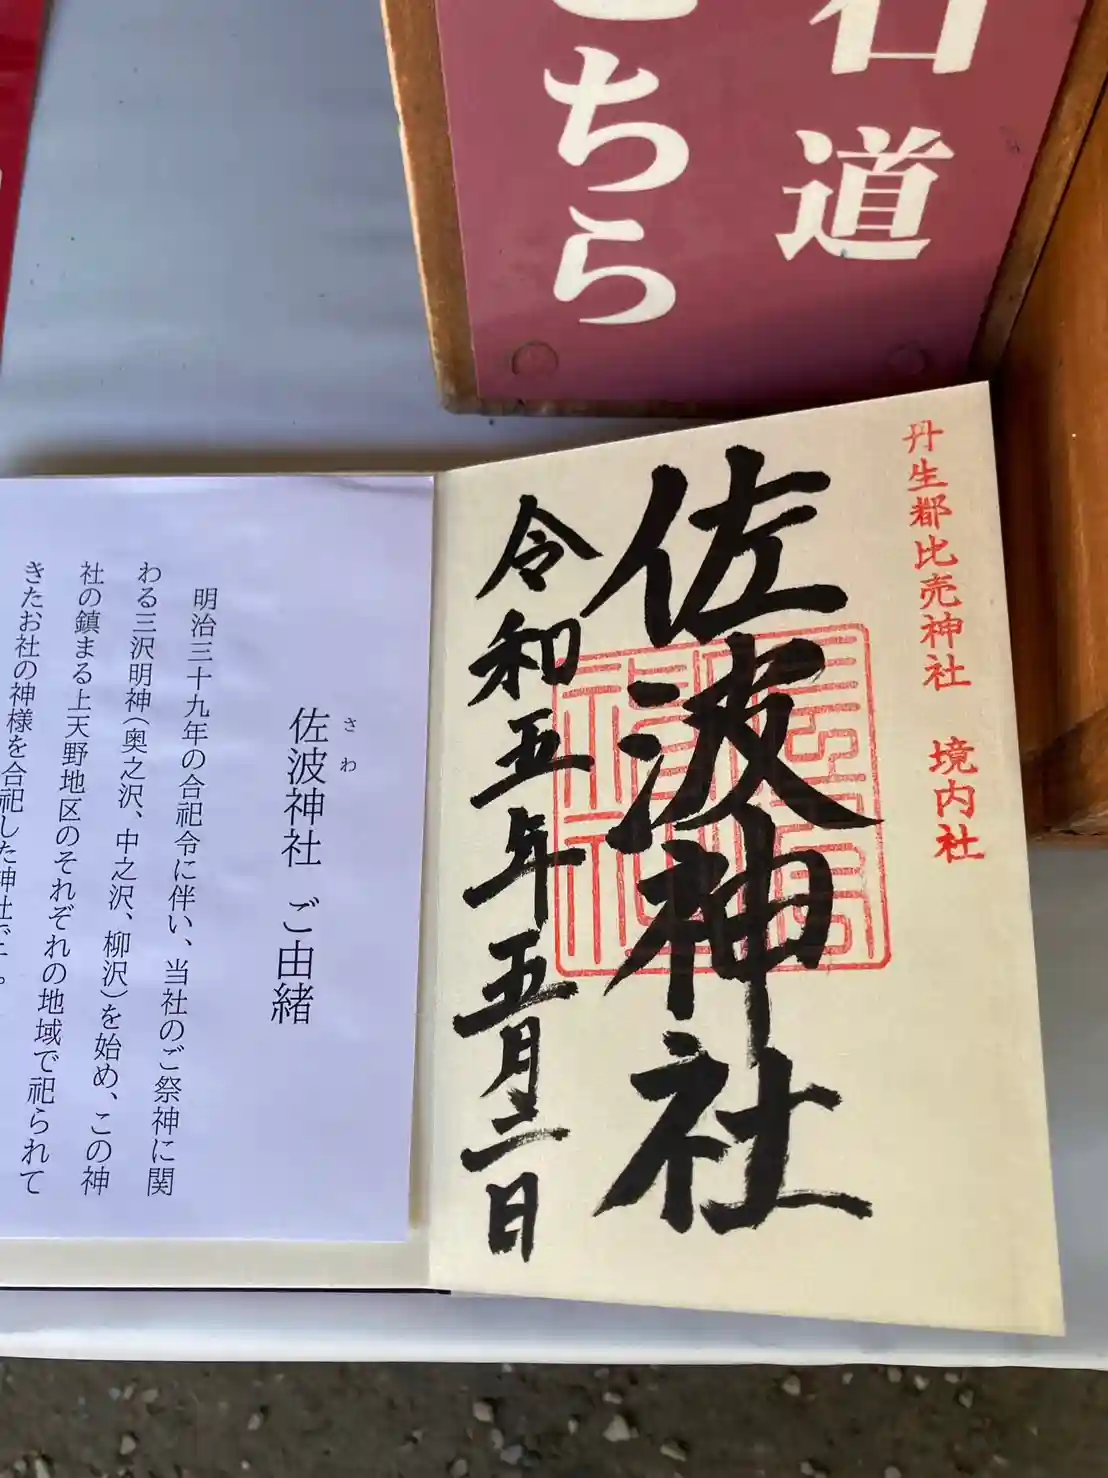 道
こちら
丹生都比売神社 境内社
佐波神社
令和五年五月二日
さわ
佐波神社 ご由緒
明治三十九年の合祀令に伴い、当社のご祭神に関
わる三沢明神(奥之沢、中之沢、柳沢)を始め、この神
社の鎮まる上天野地区のそれぞれの地域で祀られて
きたお社の神様を合祀した神社です。